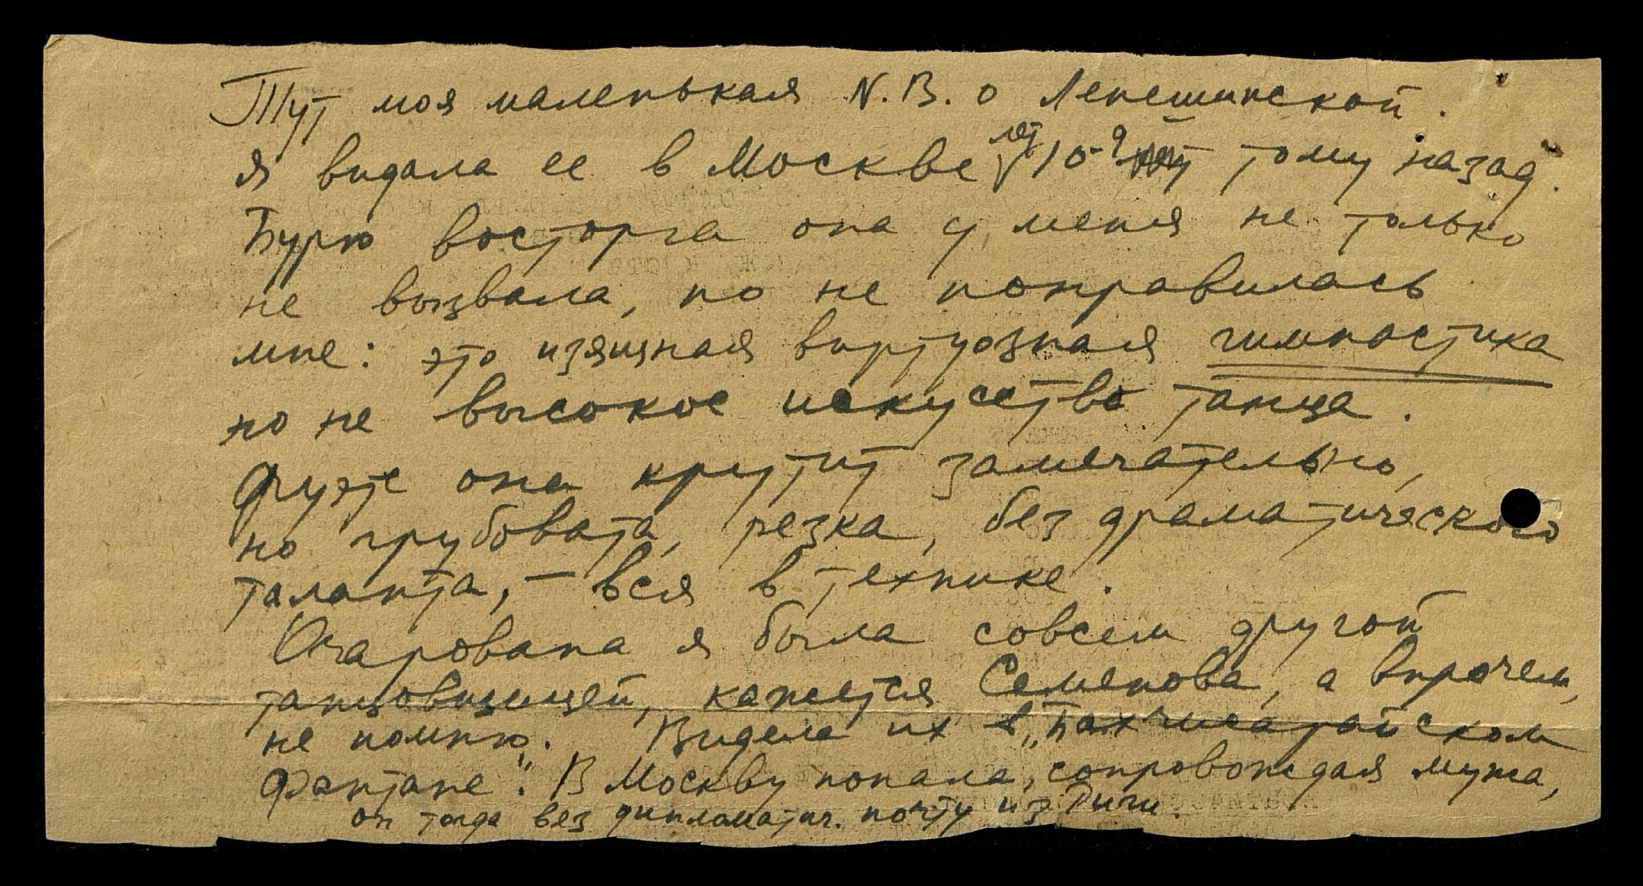 Тут моя маленькая N.B. о Лепешинской.
я видала ее в Москве лет 10-9 тому назад.
Бурю восторга она у меня не только
не вызвала, но не понравилась
мне: это изящная виртуозная гимнастика
но не высокое искусство танца.
Фуэте она крутит замечательно,
но грубовата, резка, без драматического
таланта, – вся в технике.
Очарована я была совсем другой
танцовщицей, кажется Семенова, а впрочем,
не помню. Видела их в „Бахчисарайском
Фонтане". В Москву попала, сопровождая мужа,
он тогда вез дипломатич. почту из